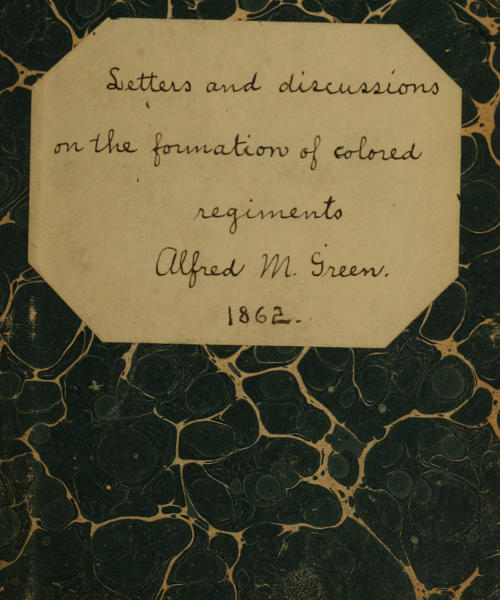 Letters and discussions
on the formation of colored
regiments
Alfred M. Green.
1862.